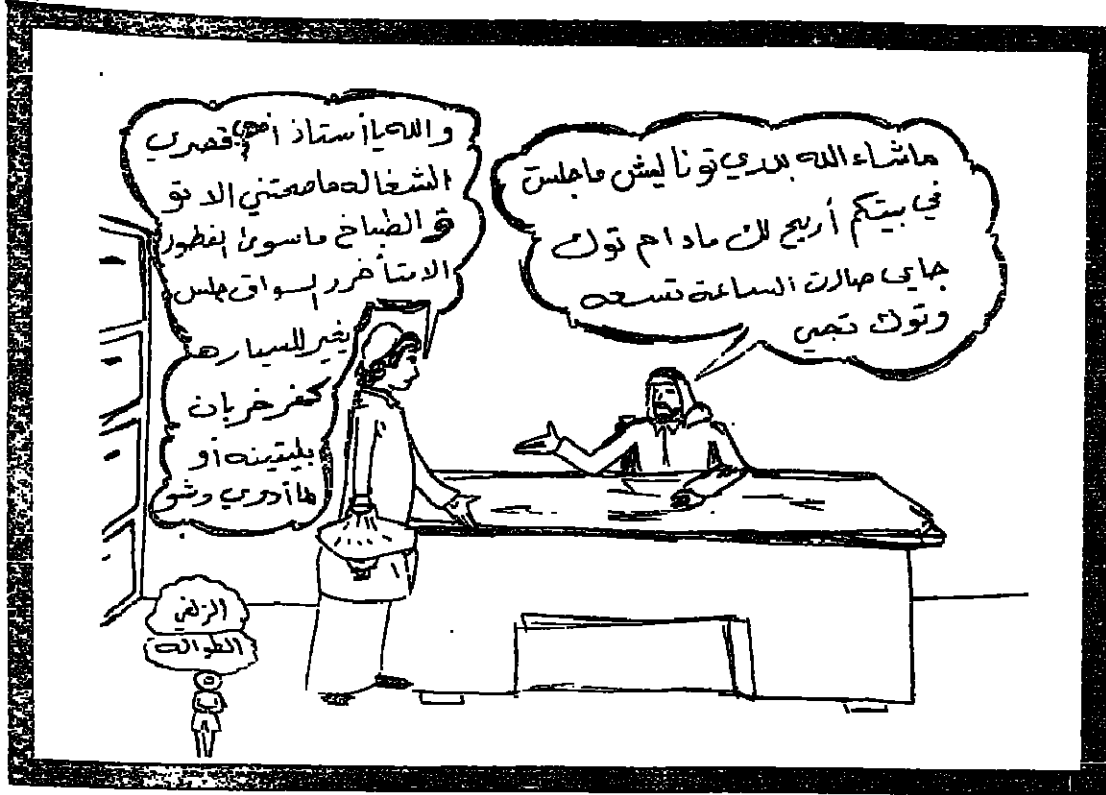 ماشاء الله بدري تونا ليش ماجلست
في بيتكم أريح لك مادام توك
جاي صارت الساعة تسعه
وتوك تجي
والله يا أستاذ قصري
الشغاله ماصحتني الا تو
و الطباخ ماسوى الفطور
الا متأخر والسواق جلس
يغير للسياره
كفر خربان
بليتينه أو
ماأدري وشو
الزلفي
الطوالة